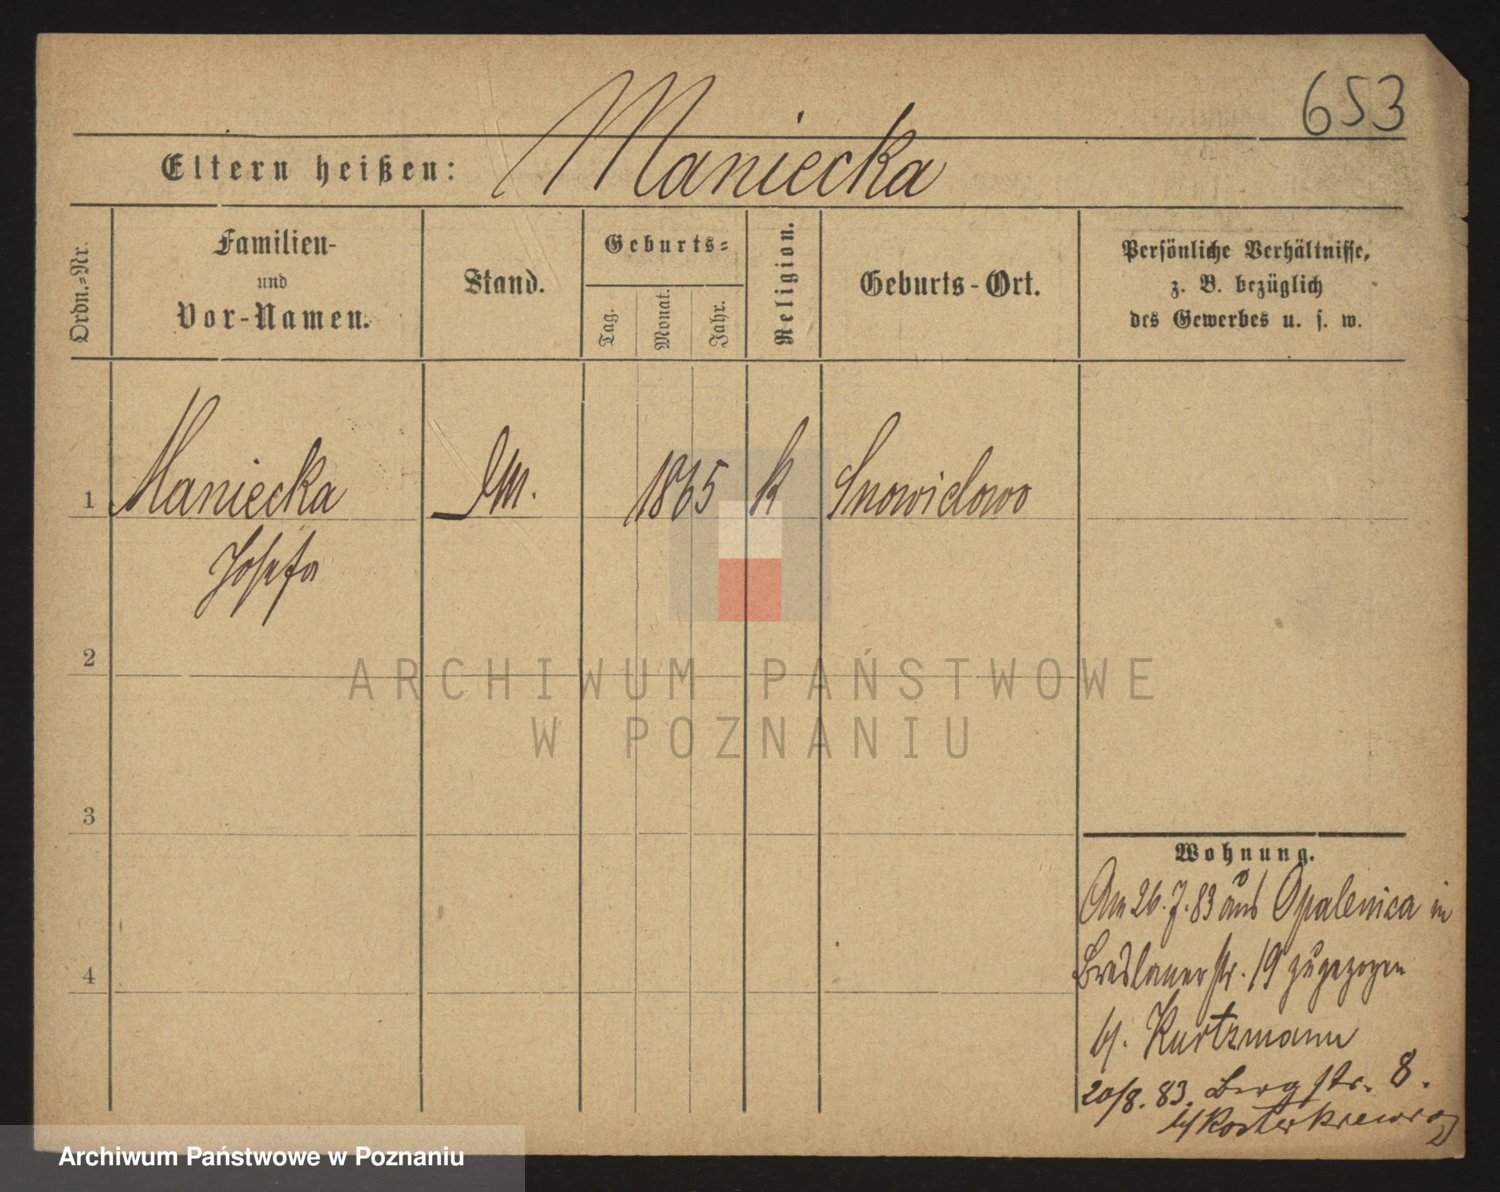 653
Eltern heißen: Maniecka
Ordn.-Nr.
Familien-
und
Vor-Namen.
Stand.
Geburts-
Tag.
Monat.
Jahr.
Religion.
Geburts-Ort.
Persönliche Verhältnisse,
z. B. bezüglich
des Gewerbes u. s. w.
1 Maniecka 1865 k Snowidowo
Josefa
2
3
4
Wohnung.
Am 26.7.83 aus Opalenica in
Breslauerstr. 19 zugezogen
b/. Kurtzmann
20/8. 83. Bergstr. 8.
b/
ARCHIWUM PAŃSTWOWE
W POZNANIU
Archiwum Państwowe w Poznaniu